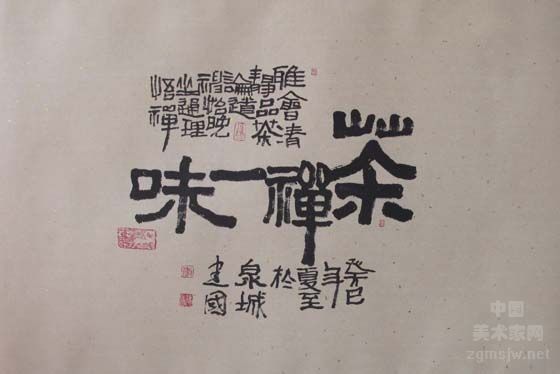 雅會清
靜品茶
論道
神怡晚
坐通理
悟禪
茶禪一味
癸巳
年
夏至
於
泉城
建國
中国
美术家网
zgmsjw.net